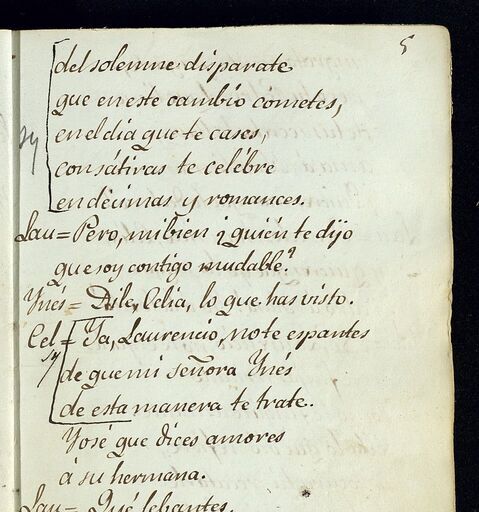 5
del solemne disparate
que en este cambio cometes,
en el dia que te cases,
con sátiras te celébre
en décimas y romances.
Lau = Pero, mi bien ¿quién te dijo
que soy contigo mudable?
Ynés = Dile, Celia, lo que has visto.
Cel = Ya, Laurencio, no te espantes
de que mi señora Ynés
de esta manera te trate.
Yo sé que dices amores
á su hermana.
Lau = Qué lebantes.